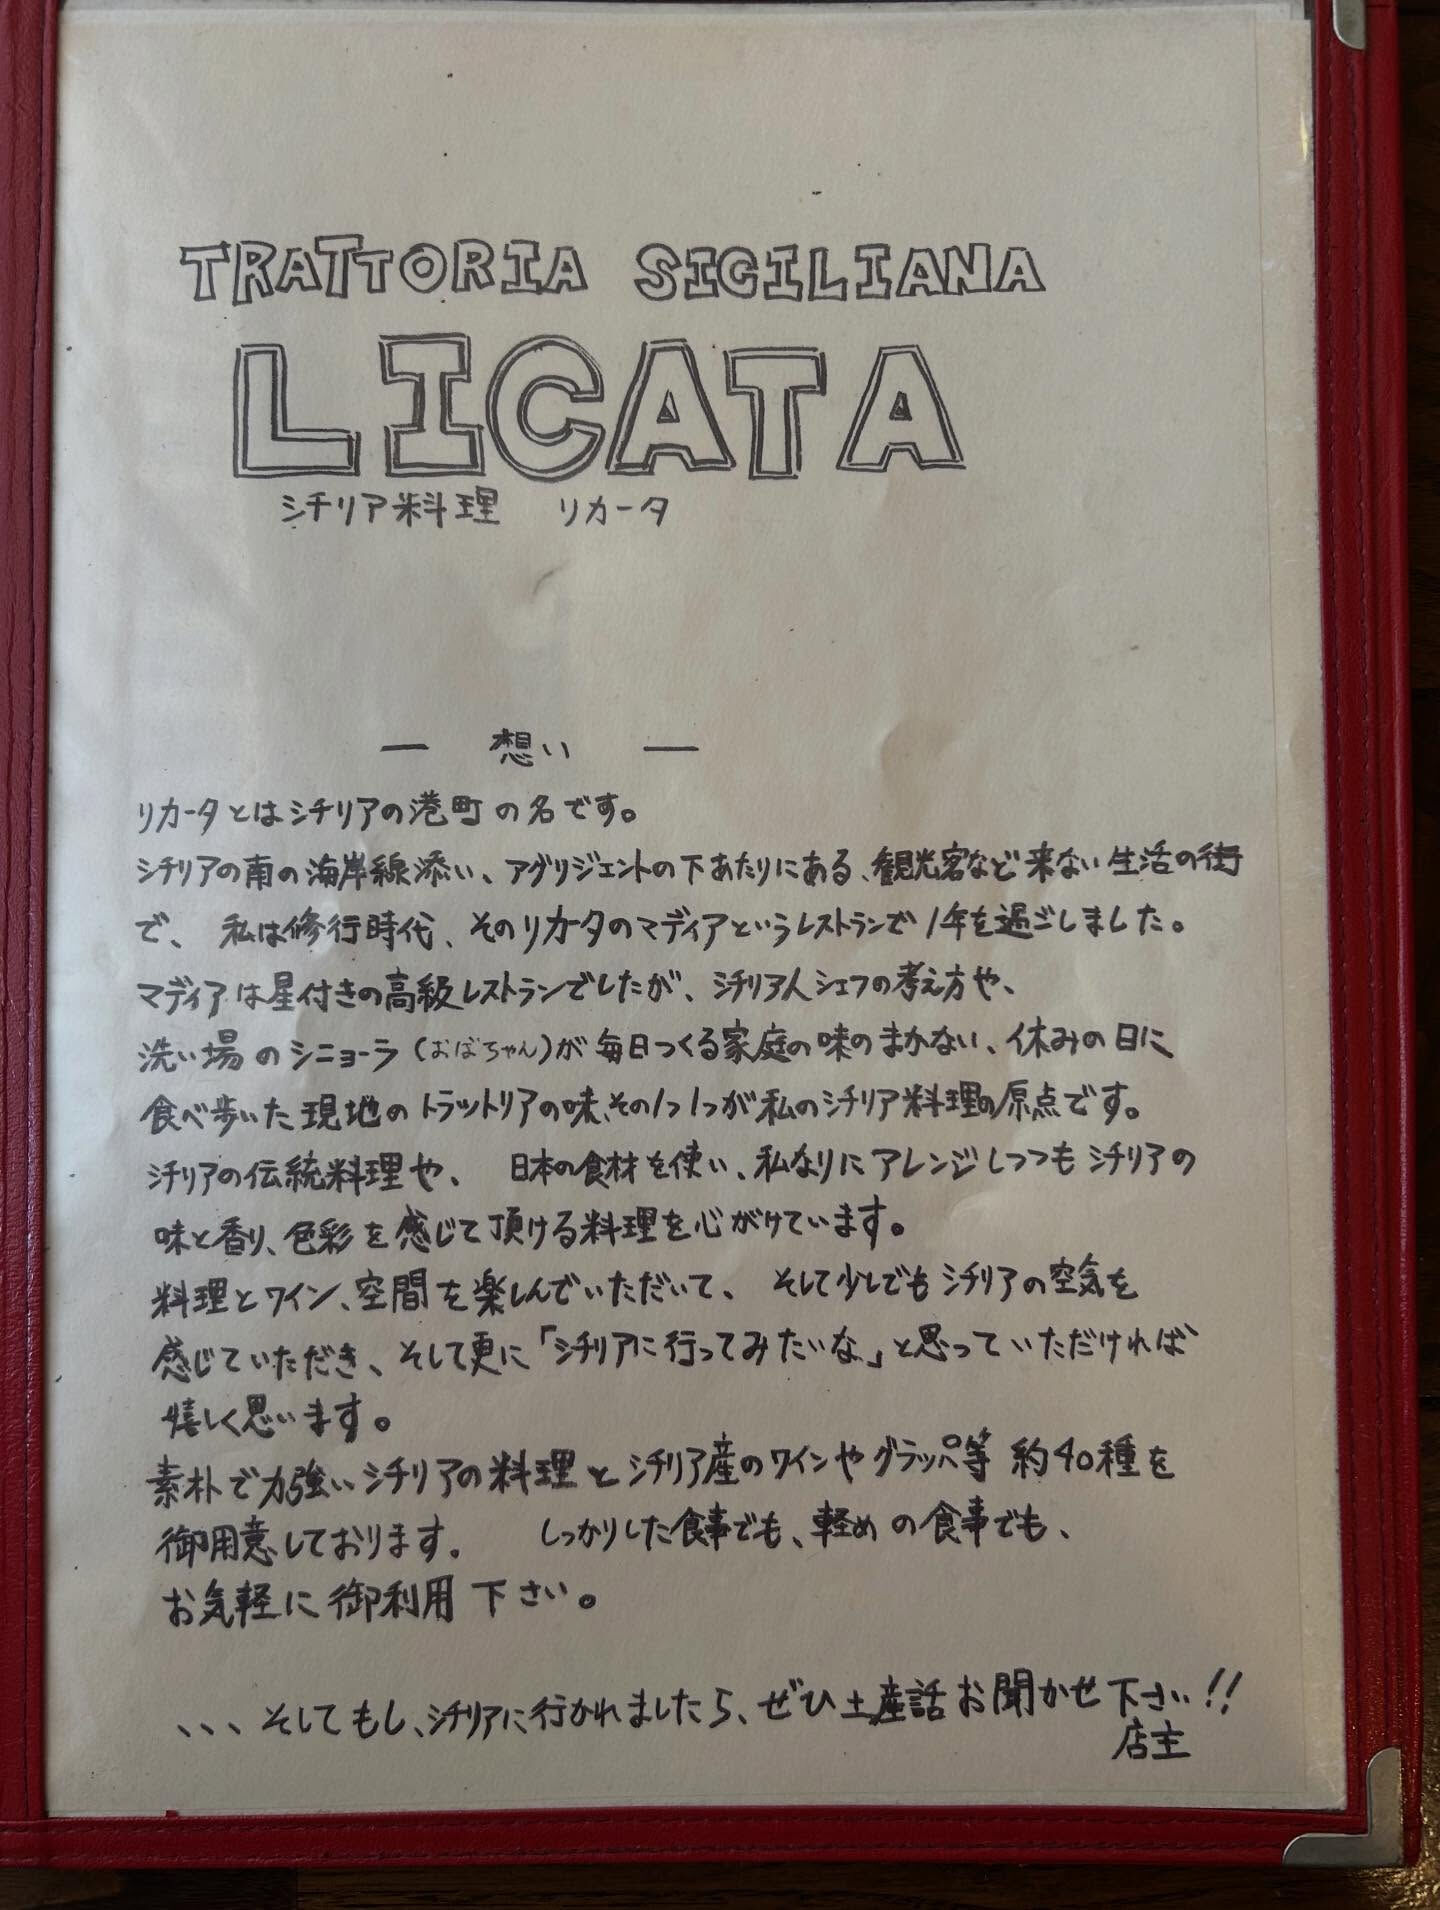 TRATTORIA SICILIANA
LICATA
シチリア料理 リカータ
― 想い ―
リカータとはシチリアの港町の名です。
シチリアの南の海岸線添い、アグリジェントの下あたりにある、観光客など来ない生活の街
で、 私は修行時代、そのリカータのマディアというレストランで1年を過ごしました。
マディアは星付きの高級レストランでしたが、シチリア人シェフの考え方や、
洗い場のシニョーラ(おばちゃん)が毎日つくる家庭の味のまかない、休みの日に
食べ歩いた現地のトラットリアの味、その1つ1つが私のシチリア料理の原点です。
シチリアの伝統料理や、 日本の食材を使い、私なりにアレンジしつつもシチリアの
味と香り、色彩を感じて頂ける料理を心がけています。
料理とワイン、空間を楽しんでいただいて、 そして少しでもシチリアの空気を
感じていただき、そして更に「シチリアに行ってみたいな」と思っていただければ
嬉しく思います。
素朴で力強いシチリアの料理とシチリア産のワインやグラッパ等 約40種を
御用意しております。 しっかりした食事でも、軽めの食事でも、
お気軽に御利用下さい。
、、、そしてもし、シチリアに行かれましたら、ぜひ土産話お聞かせ下さい!!
店主